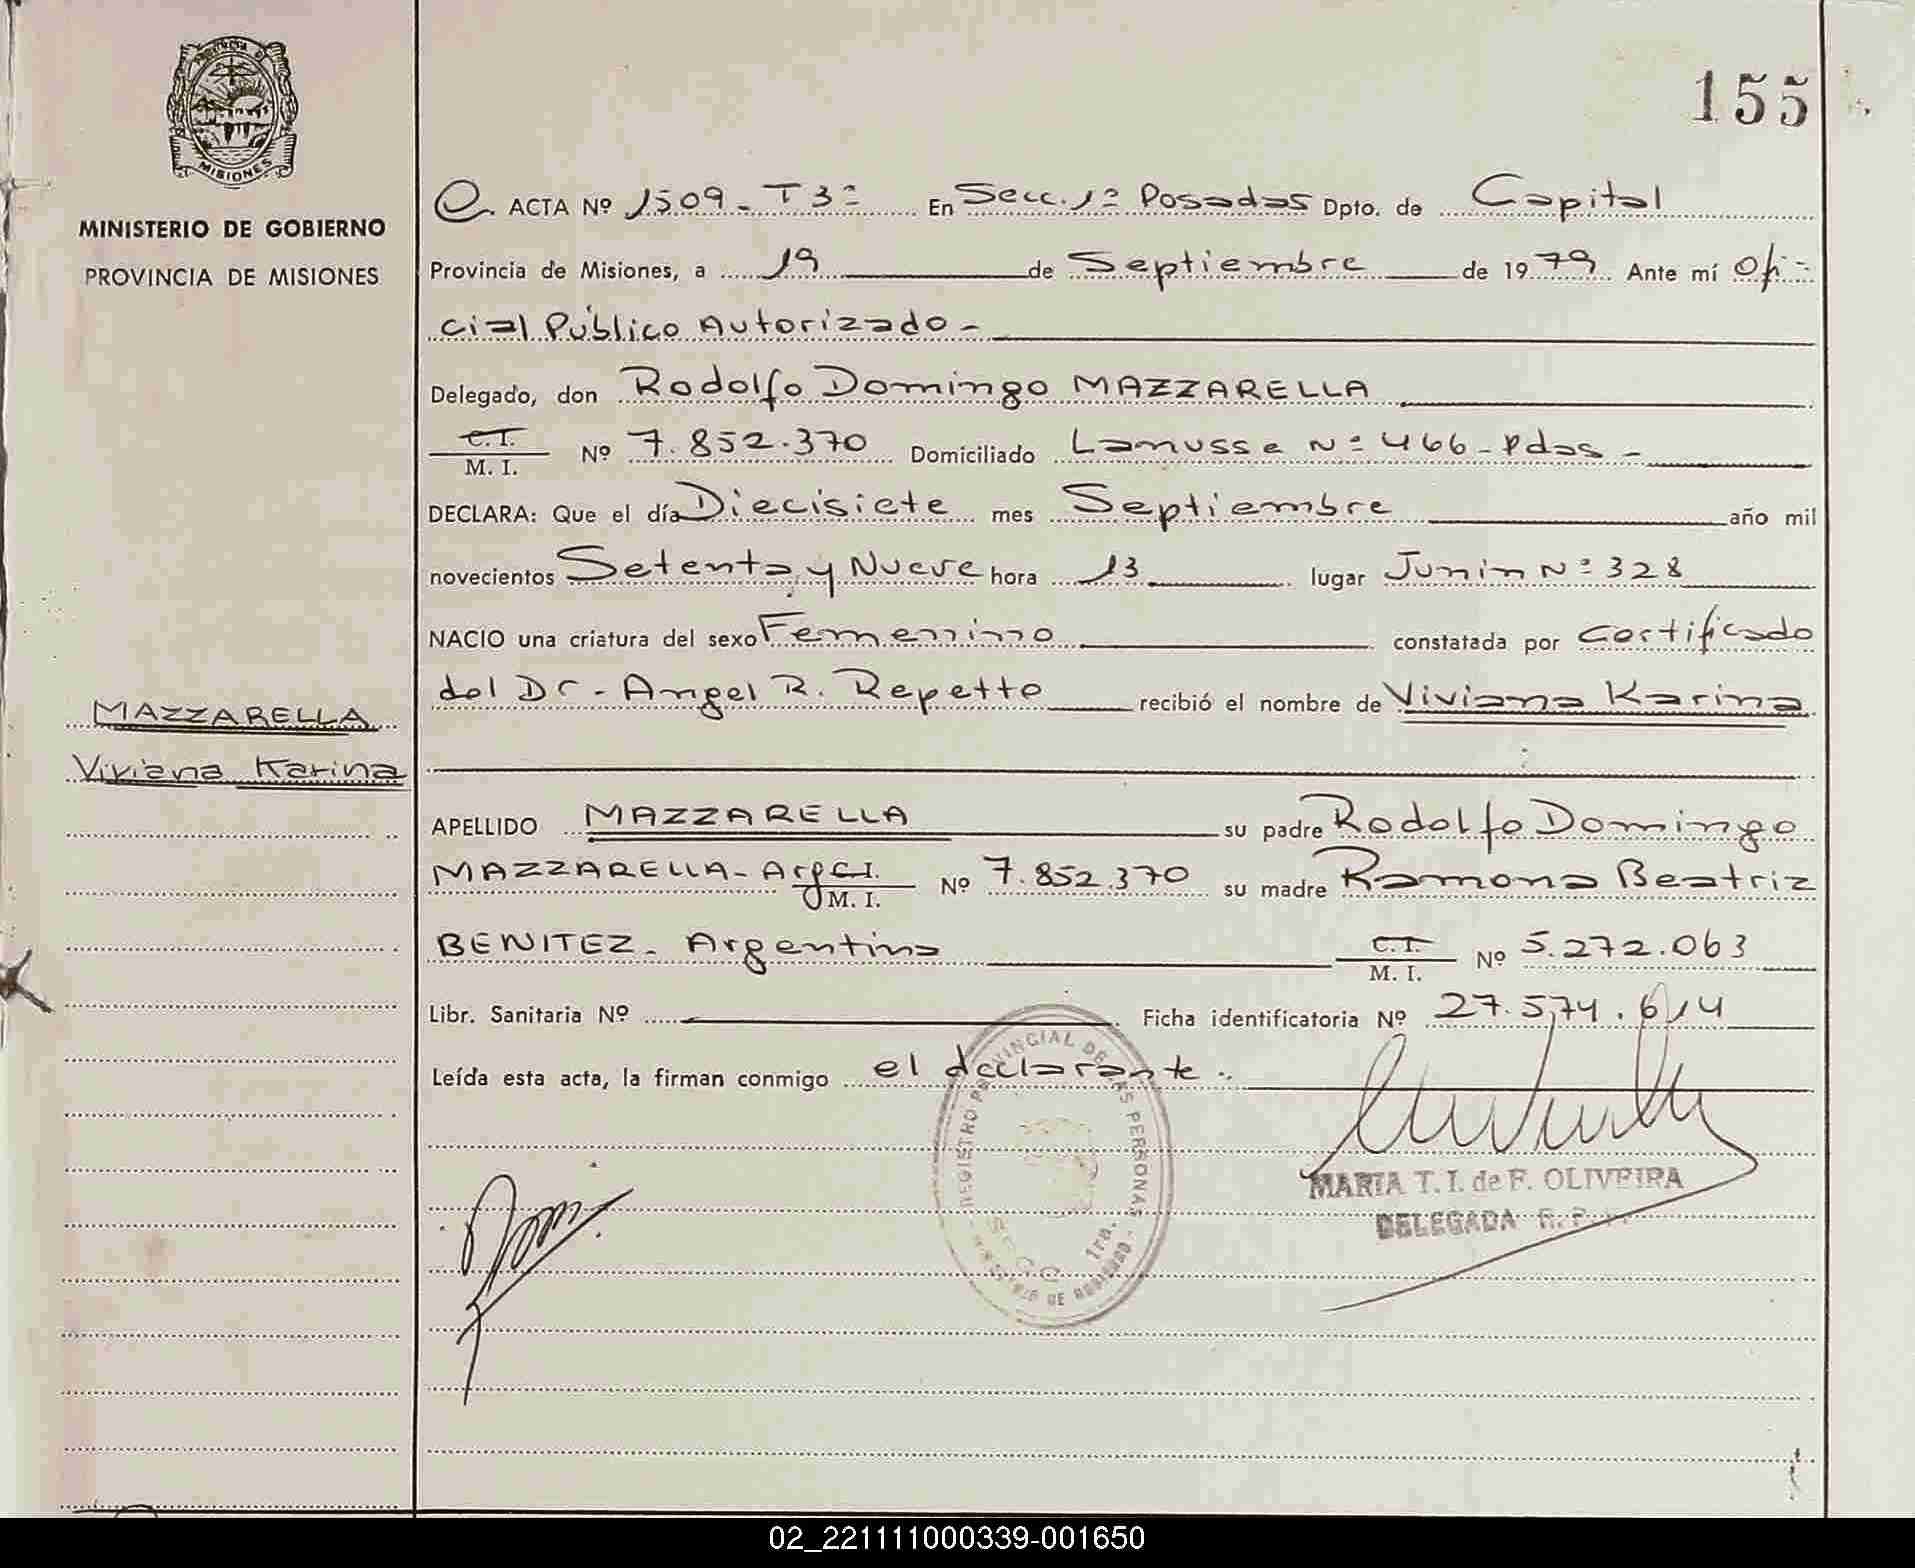 155
Provincia de
MISIONES
MINISTERIO DE GOBIERNO
PROVINCIA DE MISIONES
MAZZARELLA
Viviana Karina
ACTA Nº 1509 - T 3º En Secc. 1º Posadas Dpto. de Capital
Provincia de Misiones, a 19 de Septiembre de 1979 Ante mí Ofi-
cial Público Autorizado -
Delegado, don Rodolfo Domingo MAZZARELLA
C.I. M. I. Nº 7.852.370 Domiciliado Lanusse Nº 466 - Pdas -
DECLARA: Que el día Diecisiete mes Septiembre año mil
novecientos Setenta y Nueve hora 13 lugar Junin Nº 328
NACIO una criatura del sexo Femenino constatada por Certificado
del Dr. Angel R. Repetto recibió el nombre de Viviana Karina
APELLIDO MAZZARELLA su padre Rodolfo Domingo
MAZZARELLA - Arg C.I. M. I. Nº 7.852.370 su madre Ramona Beatriz
BENITEZ - Argentina C.I. M. I. Nº 5.272.063
Libr. Sanitaria Nº Ficha identificatoria Nº 27.574.614
Leída esta acta, la firman conmigo el declarante.
REGISTRO PROVINCIAL DE LAS PERSONAS
MINISTERIO DE GOBIERNO
Secc. 1ra.
MARIA T. I. de F. OLIVEIRA
DELEGADA R. P.
02_221111000339-001650